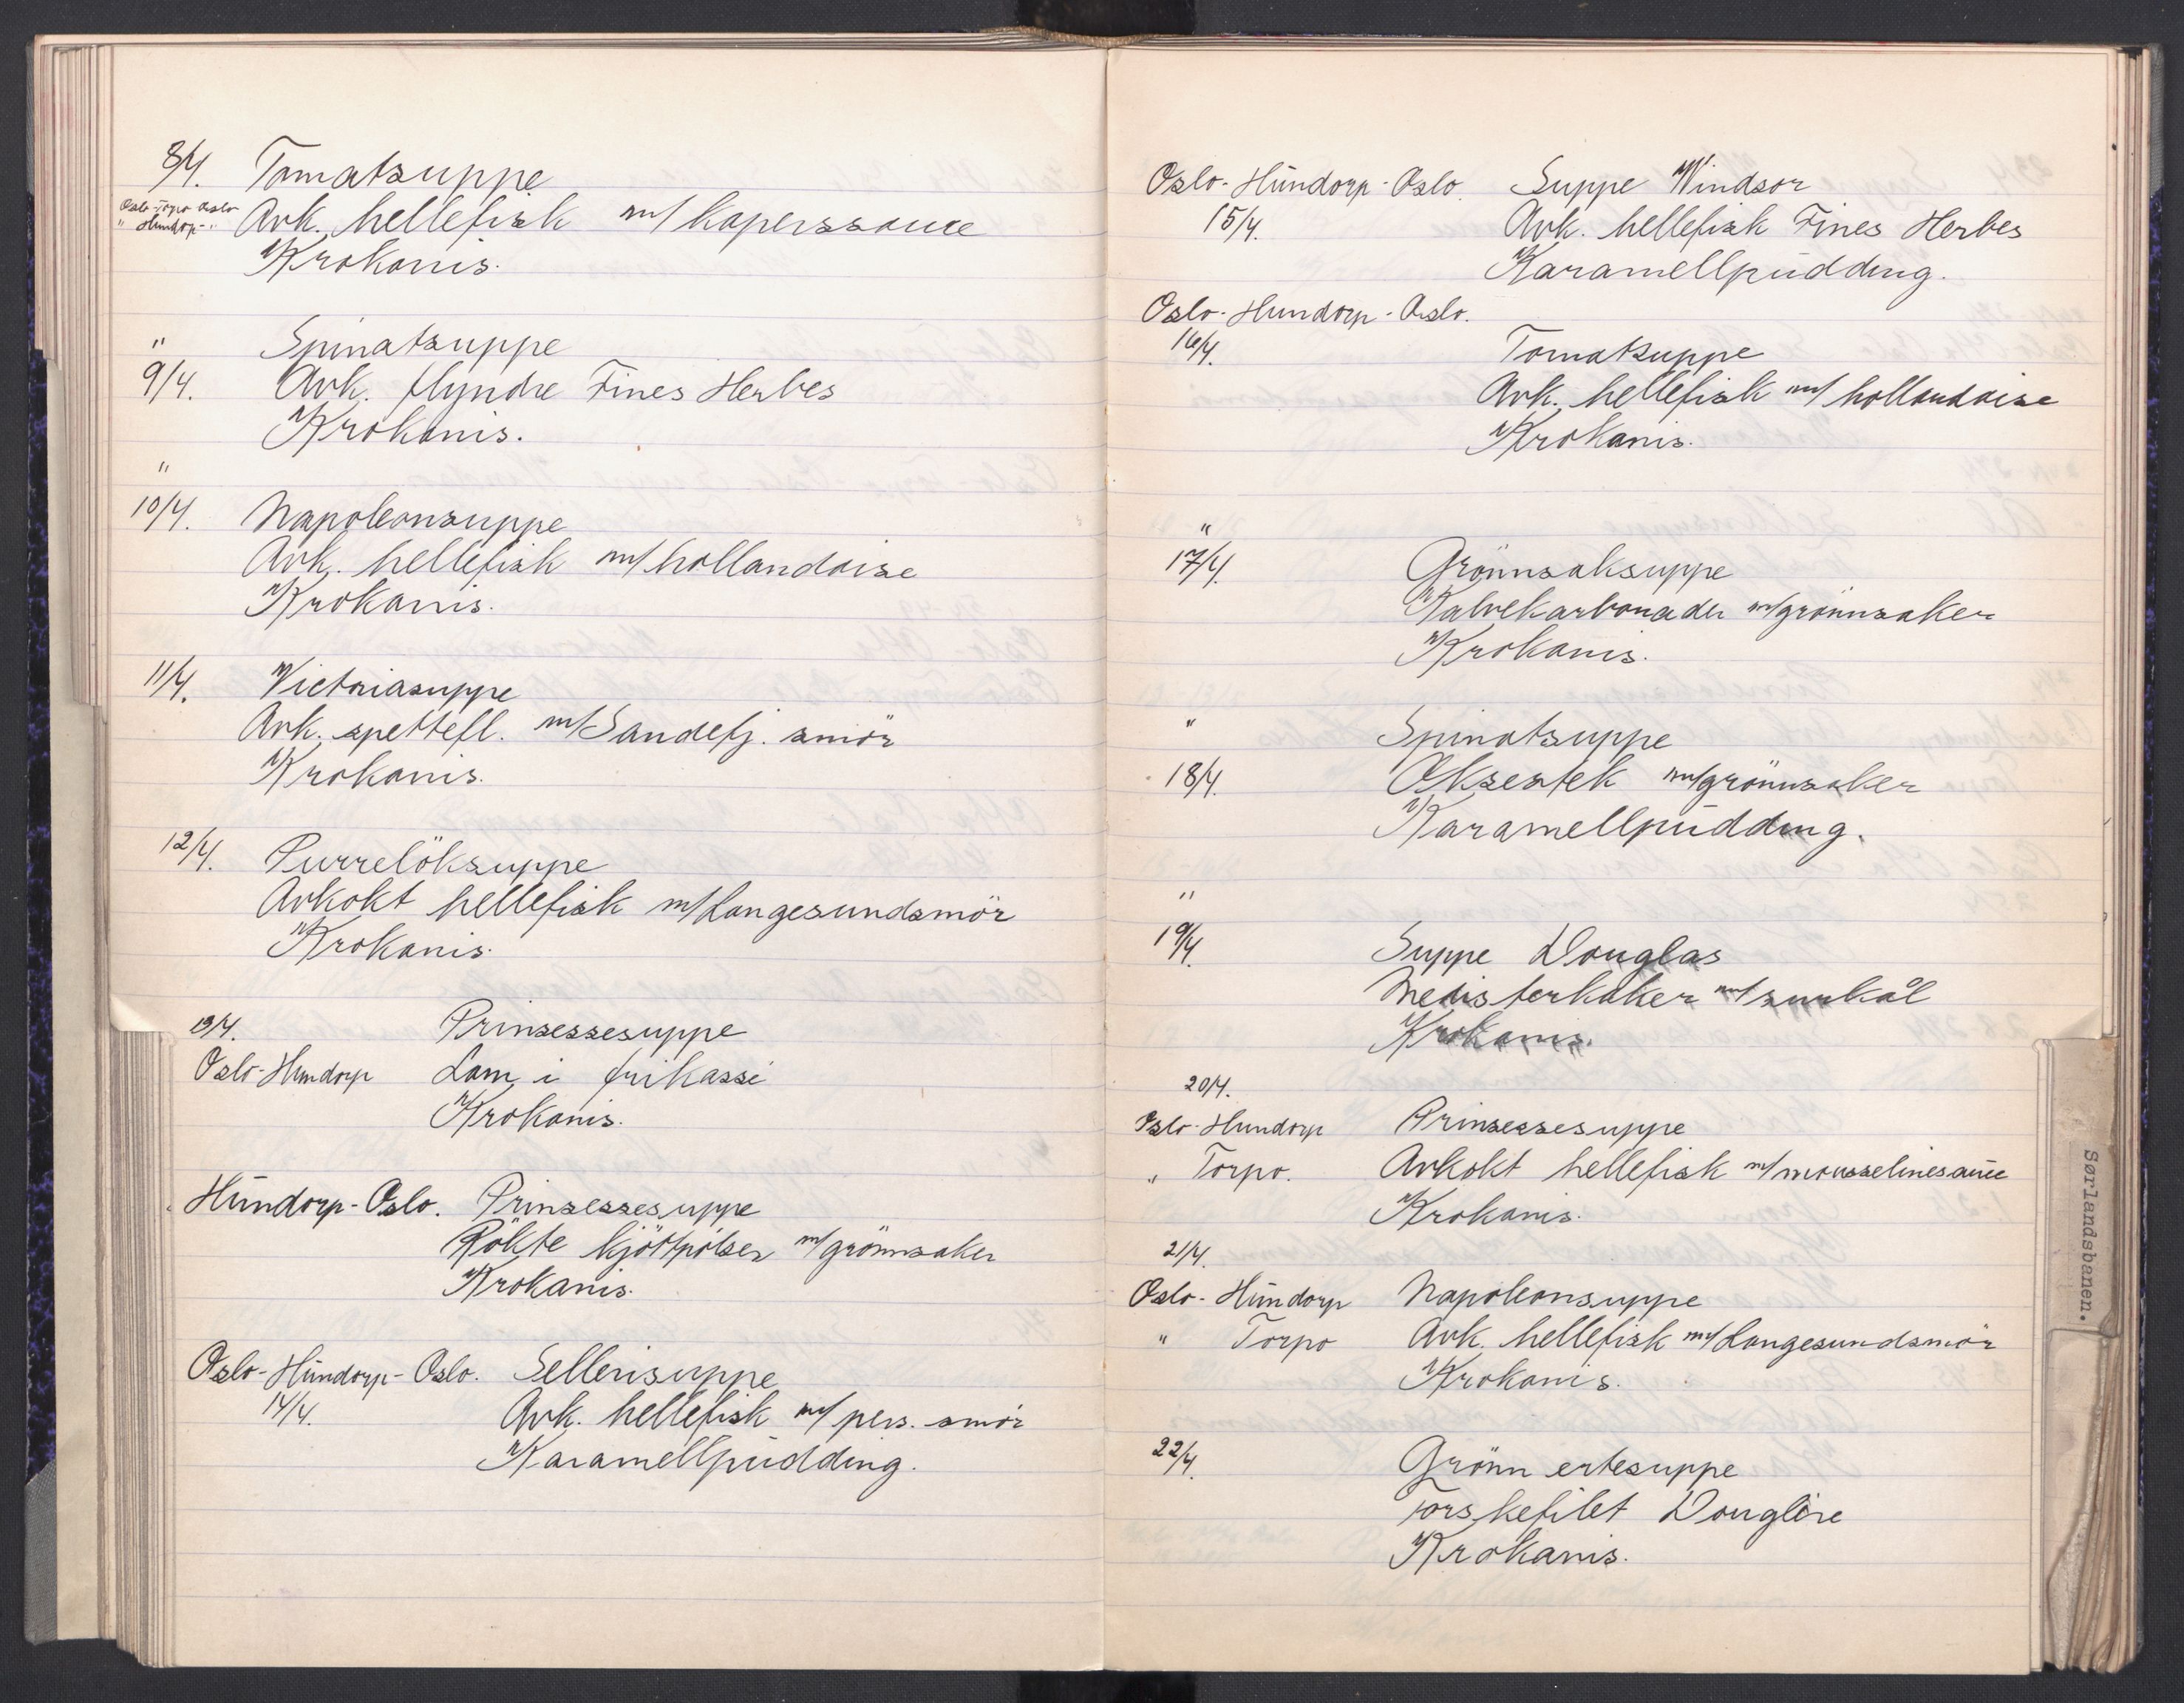 8/4. Tomatsuppe
Oslo-Torpo Oslo
" Hundorp- "
Avk. hellefisk m/ kaperssauce
Krokanis.
" Spinatsuppe
9/4. Avk. flyndre Fines Herbes
Krokanis.
"
10/4. Napoleonsuppe
Avk. hellefisk m/ hollandaise
Krokanis.
11/4. Victoriasuppe
Avk. spettefl. m/ Sandefj. smör
Krokanis.
12/4. Purrelöksuppe
Avkokt hellefisk m/ Langesundsmör
Krokanis.
13/4. Prinsessesuppe
Oslo-Hundorp Lam i frikassé
Krokanis.
Hundorp-Oslo. Prinsessesuppe
Rökte kjöttpölser m/ grönnsaker
Krokanis.
Oslo-Hundorp-Oslo. Sellerisuppe
14/4. Avk. hellefisk m/ pers. smör
Karamellpudding.
Oslo-Hundorp-Oslo. Suppe Windsor
15/4. Avk. hellefisk Fines Herbes
Karamellpudding.
Oslo-Hundorp-Oslo.
16/4. Tomatsuppe
Avk. hellefisk m/ hollandaise
Krokanis.
"
17/4. Grönnsaksuppe
Kalvekarbonader m/ grönnsaker
Krokanis.
" Spinatsuppe
18/4. Oksestek m/ grönnsaker
Karamellpudding.
"
19/4. Suppe Douglas
Medisterkaker m/ surkål
Krokanis.
20/4.
Oslo-Hundorp Prinsessesuppe
" Torpo. Avkokt hellefisk m/ mousselinesauce
Krokanis.
21/4.
Oslo-Hundorp Napoleonsuppe
" Torpo Avk. hellefisk m/ Langesundsmör
Krokanis.
22/4. Grönn ertesuppe
Torskefilet Douglère
Krokanis.
Sørlandsbanen.